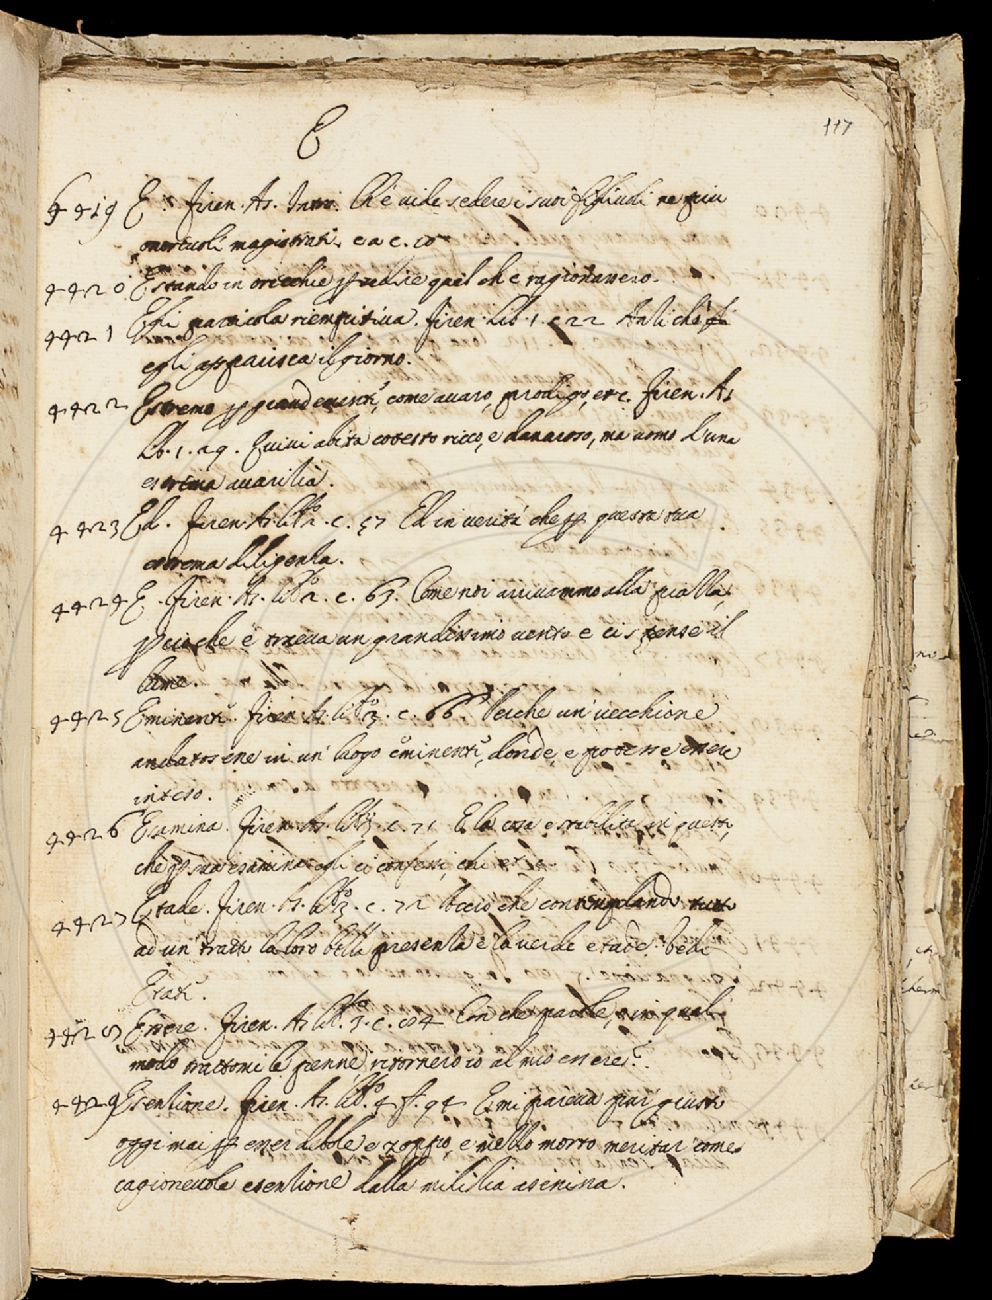 E
117
4419 E. Firen. As. Ch'è vide sedere i suoi figliuoli ne più
magistrati. e a c. 10
4420 Estando in orecchie quel che ragionavano.
4421 particola riempitiva. Firen. Lib. 1. c 22 Anzi che
egli apparisca il giorno.
4422 Estremo p grandemente, come avaro, prodigo, etc. Firen. As
lib. 1. 29. Quivi abita cotesto ricco, e danaroso, ma uomo d'una
estrema avarizia.
4423 Ed. Firen. As. libro 2. c. 57 Ed in verità che p questa tua
estrema diligenza.
4424 E. Firen. As. libro 2. c. 63. Come noi arrivammo alla piazza,
p ciò che e traeva un grandissimo vento e ci spense il
lume.
4425 Eminente. Firen. As. libro 3. c. 66 Perche un vecchione
andatosene in un luogo eminente, donde e potesse essere
inteso.
4426 Esamina. Firen. As. libro 3. c. 71 E la cosa e ridotta in questo,
che p sua esamina egli ci confessi, chi
4427 Etade. Firen. As. libro 3. c. 72 Acciò che contemplando tutte
ad un tratto la loro bella presenza e la verde etade. Vedi
Età.
4428 Essere. Firen. As. lib. 3. c. 104 Con che parole, o in qual
modo trattomi le penne ritornerò io al mio essere?
4429 Esenzione. Firen. As. libro 4 f. 94 E mi pareva pur giusto
oggimai p esser debole e zoppo, e mezzo morto meritar come
cagionevole esenzione dalla milizia asinina.